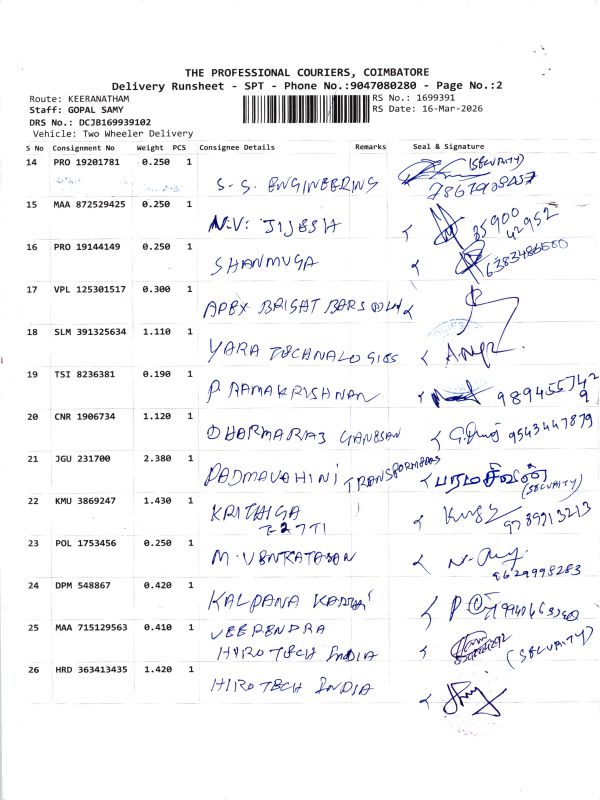 THE PROFESSIONAL COURIERS, COIMBATORE
Delivery Runsheet - SPT - Phone No.:9047080280 - Page No.:2
Route: KEERANATHAM RS No.: 1699391
Staff: GOPAL SAMY RS Date: 16-Mar-2026
DRS No.: DCJB169939102
Vehicle: Two Wheeler Delivery
S No Consignment No Weight PCS Consignee Details Remarks Seal & Signature
14 PRO 19201781 0.250 1 (SECURITY)
S.S. ENGINEERING
15 MAA 872529425 0.250 1
N.V. JIJESH 85900
42952
16 PRO 19144149 0.250 1
SHANMUGA
17 VPL 125301517 0.300 1
APEX BRIGHT BARS
18 SLM 391325634 1.110 1
YARA TECHNALOGIES
19 TSI 8236381 0.190 1
P RAMAKRISHNAN 989455742
9
20 CNR 1906734 1.120 1
DHARMARAJ GANESAN 9543447879
21 JGU 231700 2.380 1
PADMAVAHINI TRANSFORMERS பரமசிவன்
(SECURITY)
22 KMU 3869247 1.430 1
KRITHIGA
9789913213
23 POL 1753456 0.250 1
M. VENKATESAN
9629998283
24 DPM 548867 0.420 1
KALPANA
25 MAA 715129563 0.410 1
VEERENDRA
HIRO TECH INDIA (SECURITY)
26 HRD 363413435 1.420 1
HIRO TECH INDIA